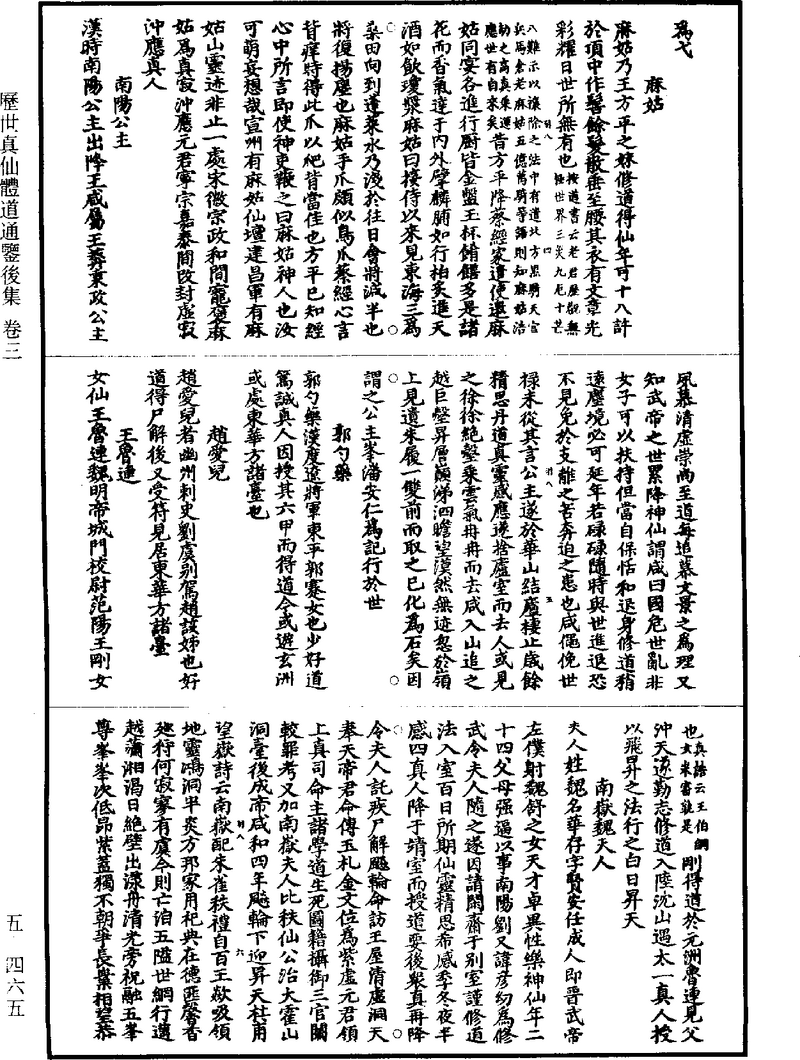 歷世真仙體道通鑒後集 卷三
五 四六五
爲弋
麻姑
麻姑乃王方平之妹修道得仙年可十八許
於頂中作髻餘髮散垂至腰其衣有文章光
彩耀日世所無有也
姑同宴各進行廚皆金盤玉杯餚饍多是諸
花而香氣達于內外擘麟脯如行柏炙進天
酒如飲瓊漿麻姑曰接侍以來見東海三爲
桑田向到蓬萊水乃淺於往日會將減半也
將復揚塵也麻姑手爪頗似鳥爪蔡經心言
背痒時得此爪以爬背當佳也方平已知經
心中所言即使神吏鞭之曰麻姑神人也汝
可萌妄想哉宣州有麻姑仙壇建昌軍有麻
姑山靈迹非止一處宋徽宗政和間寵褒麻
姑爲真寂沖應元君寧宗嘉泰間改封虛寂
沖應真人
南陽公主
漢時南陽公主出降王咸屬王莽秉政公主
風慕清虛崇尚至道每追慕文景之爲理又
知武帝之世累降神仙謂咸曰國危世亂非
女子可以扶持但當自保恬和退身修道稍
遠塵境必可延年若碌碌隨時與世進退恐
不見免於支離之苦奔迫之患也咸僶俛世
祿未從其言公主遂於華山結廬棲止歲餘
精思丹道真靈感應遂捨廬室而去人或見
之徐徐絕壑乘雲氣冉冉而去咸入山追之
越巨壑昇層巔涕泗瞻望漠然無迹忽於嶺
上見遺朱履一雙前而取之已化爲石矣因
謂之公主峯潘安仁爲記行於世
郭勺藥
郭勺藥漢度遼將軍東平郭騫女也少好道
篤誠真人因授其六甲而得道今或遊玄洲
或處東華方諸臺也
趙愛兒
趙愛兒者幽州刺史劉虞別駕趙該姊也好
道得尸解後又受符見居東華方諸臺
王魯連
女仙王魯連魏明帝城門校尉范陽王剛女
也真誥云王伯綱女來者就是剛得道於元洲魯連見父
沖天遂勤志修道入陸沈山遇太一真人授
以飛昇之法行之白日昇天
南嶽魏夫人
夫人姓魏名華存字賢安任成人即晉武帝
左僕射魏舒之女天才卓異性樂神仙年二
十四父母強逼以事南陽劉乂諱彥幼爲修
武令夫人隨之遂因請閑齋于別室謹修道
法入室百日所期仙靈精思希感季冬夜半
感四真人降于靖室而授道要後衆真再降
令夫人託疾尸解飈輪命訪王屋清虛洞天
奉天帝君命傳玉札金文位爲紫虛元君領
上真司命主諸學道生死圖籍攝御三官關
較罪考又加南嶽夫人比秩仙公治大霍山
洞臺後成帝咸和四年飈輪下迎昇天杜甫
望嶽詩云南嶽配朱雀秩禮自百王欻吸領
地靈鴻洞半炎方邦家用祀典在德匪馨香
巡狩何寂寥有虞今則亡洎吾隘世網行邁
越瀟湘渴日絕壁出漾舟清光旁祝融五峯
尊峯峯次低昂紫蓋獨不朝爭長嶪相望恭